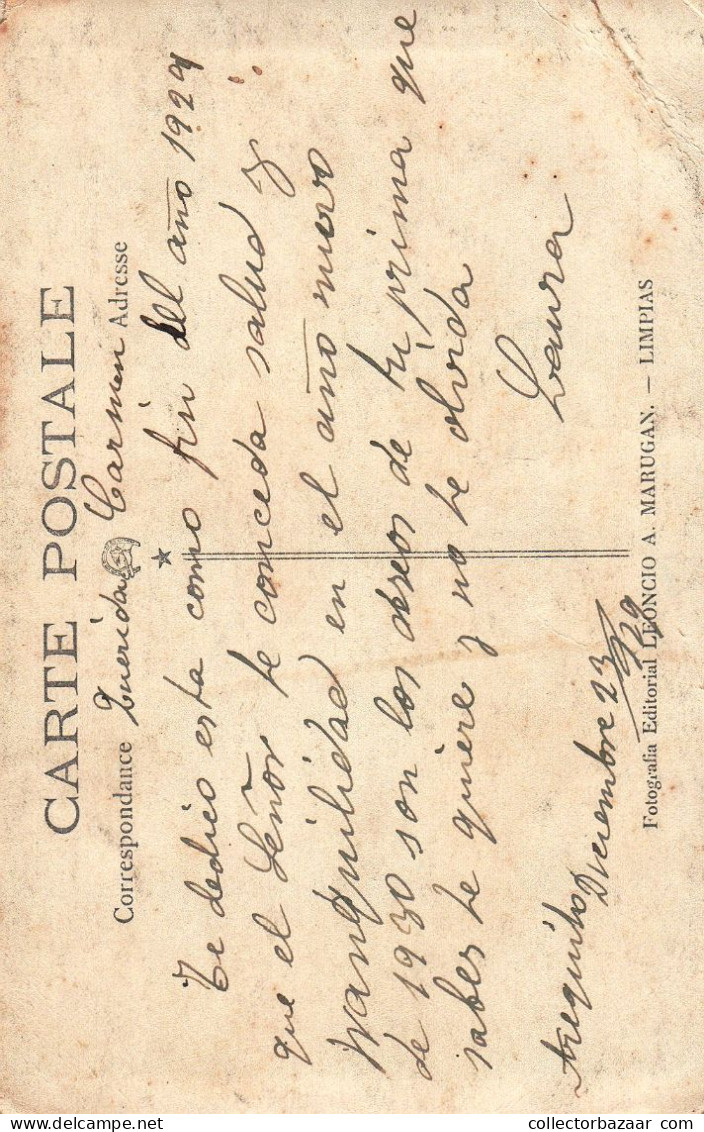 CARTE POSTALE
Correspondance
Adresse
Querida Carmen
Te dedico esta como fin del año 1929
que el Señor te conceda salud y
tranquilidad en el año nuevo
de 1930 son los deseos de tu prima que
sabes te quiere y no te olvida
Laura
Arequito
Diciembre 23/929
Fotografia Editorial LEONCIO A. MARUGAN. — LIMPIAS
collectorbazaar.com